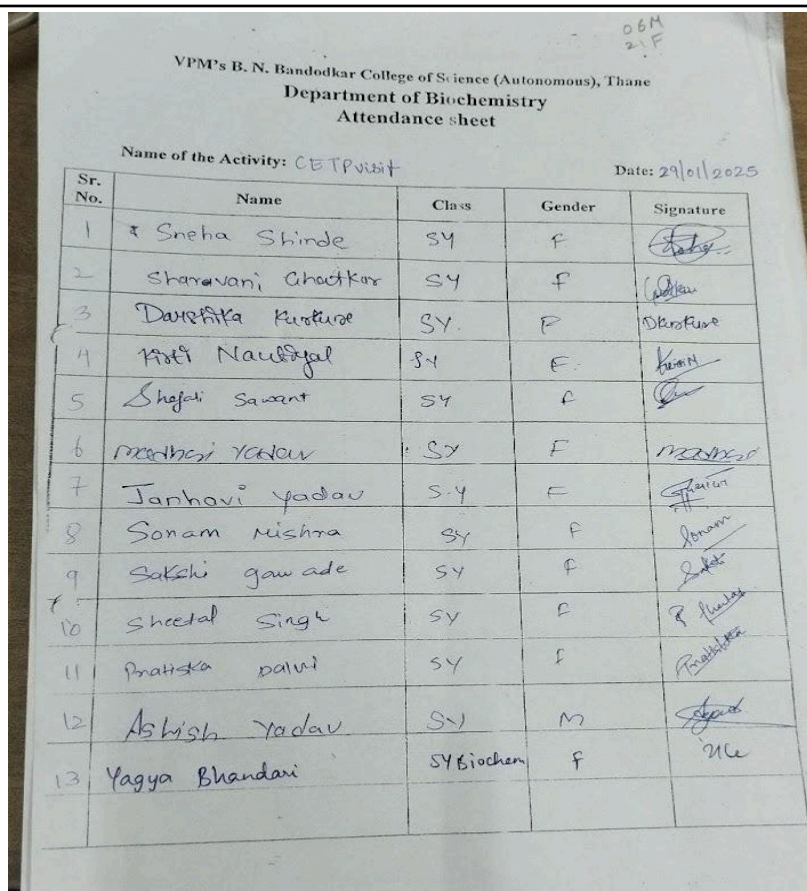 06M
21F
VPM's B. N. Bandodkar College of Science (Autonomous), Thane
Department of Biochemistry
Attendance sheet
Name of the Activity: CETP visit Date: 29/01/2025
Sr. No. Name Class Gender Signature
1 Sneha Shinde SY F
2 Sharavani Ghatkar SY F
3 Darshika Kurkure SY. F DKurkure
4 Kirti Nautiyal SY F. KirtiN
5 Shejali Sawant SY F
6 Madhavi Yadav SY F
7 Janhavi Yadav S.Y F
8 Sonam Mishra SY F Sonam
9 Sakshi gawade SY F
10 Sheetal Singh SY F
11 Pratiska Dalvi SY F
12 Ashish Yadav SY M
13 Yagya Bhandari SY Biochem F